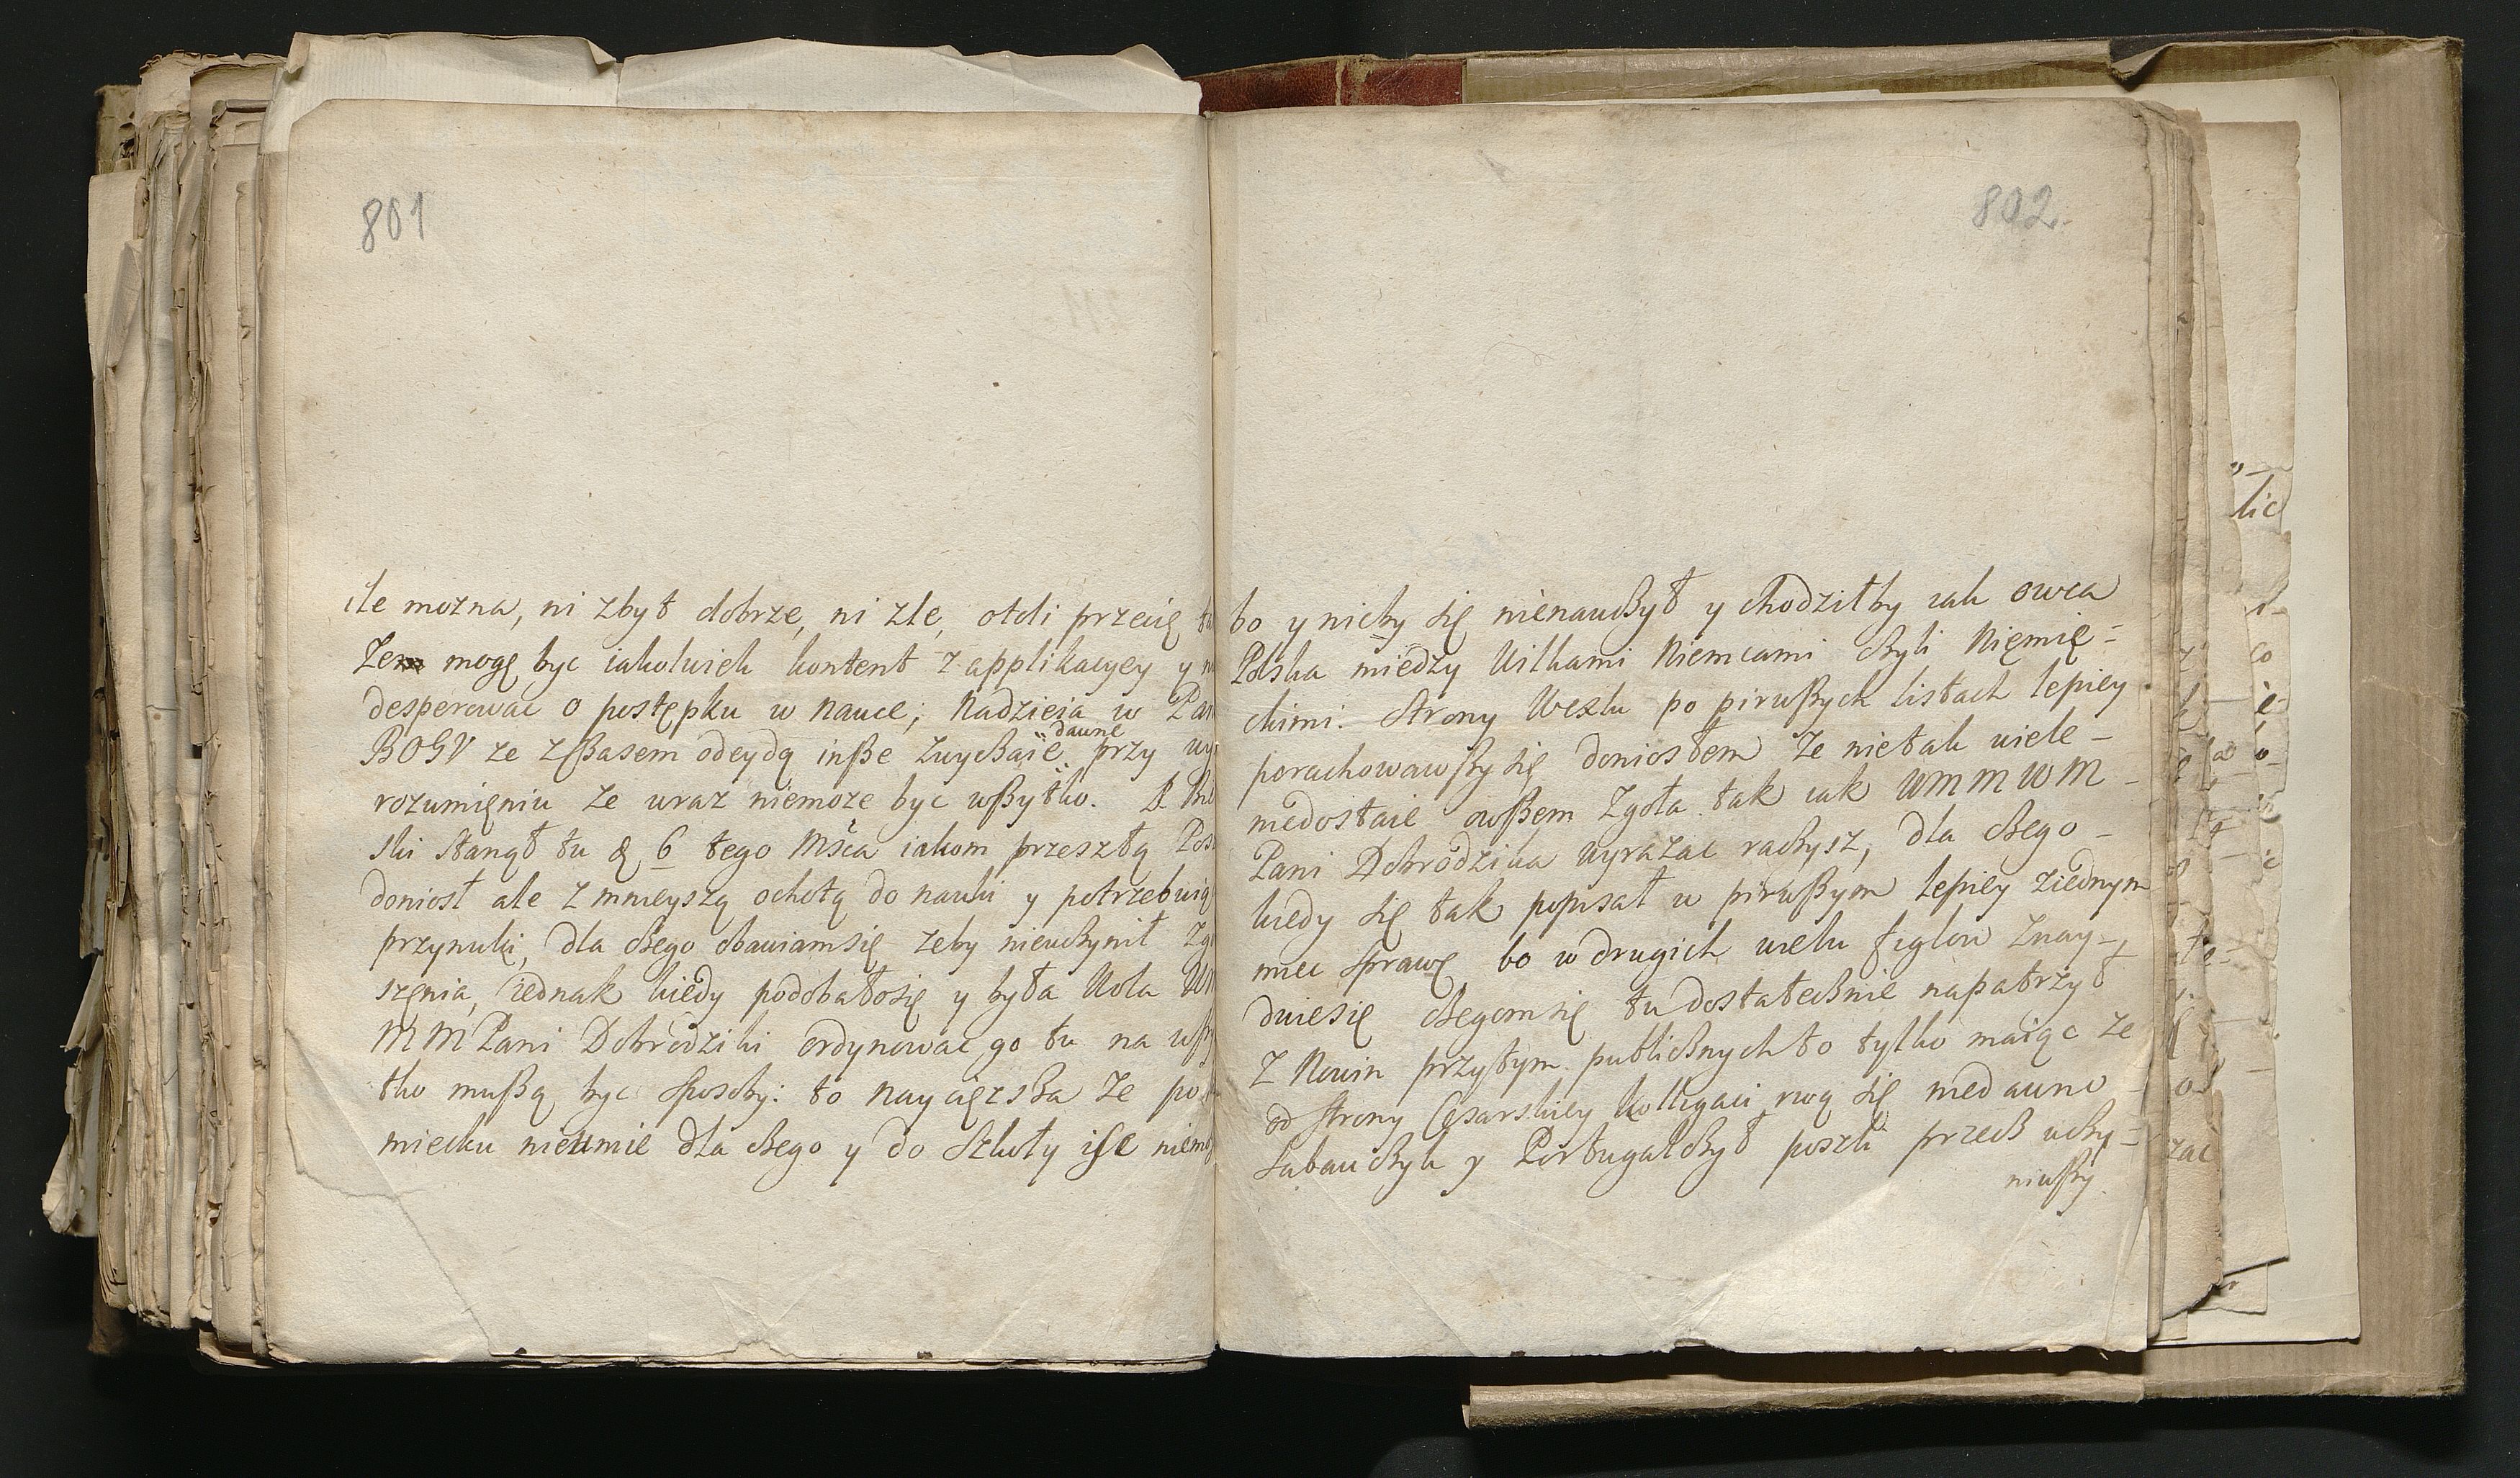 801
ile mozna, ni zbyt dobrze, ni zle, otoli przecię
Zem mogę byc iakolwiek kontent z applikacyey y
desperowac o postępku w nauce; Nadzieia w Pan
BOGV ze zßasem odeydą inße zwyckaie dawne przy wy
rozumięniu ze wraz niemoze byc wßytko. P.
ski stanął tu d 6 tego Msca iakom przeszłą Pos
doniosł ale z mnieyszą ochotą do nauki y potrzebuią
przynuki, dla cßego obawiamsię zeby nieucßynił zgo
szęnia, iednak kiedy podobałosię y była Wola WM
MM Pani Dobrodziki ordynowac go tu na wßy
tko mußą byc sposoby: to naycięzsßa ze po
miecku nieumie dla cßego y do Szkoły isc niemo
802.
bo y nicby się nienaucßył y chodziłby iak owca
Polska między Wilkami Niemcami cßyli Nięmię-
ckimi. Strony Wexlu po pirwßych listach lepiey
porachowawßy się doniosłem ze nietak wiele -
niedostaie owßem zgoła tak iak WMMWM -
Pani Dobrodzika wyrazac racßysz, dla cßego -
kiedy się tak popisał w pirwßym lepiey ziednym
miec sprawę bo w drugich wielu figlow znay-
duiesię cßegomsię tu dostatecßnie napatrzył
Z Nowin przytym publicßnych to tylko maiąc ze
od strony Cesarskiey kolligaci rwą się niedawno -
Sabaudcßyk y Portugalcßyk poszli przecß ucßy-
niwßy